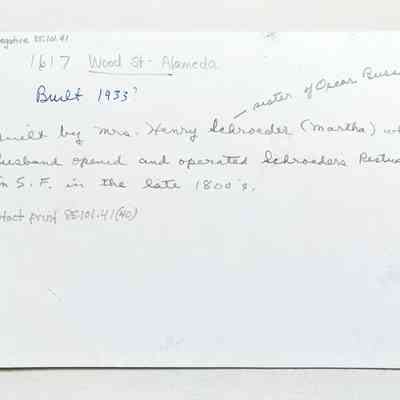 egative 85.101.41
1617 Wood St - Alameda
Built 1933?
sister of Oscar Buss
uilt by Mrs. Henry Schroeder (Martha) wh
usband opened and operated Schroeders Restu
n S.F. in the late 1800's.
tact print 85.101.41(40)